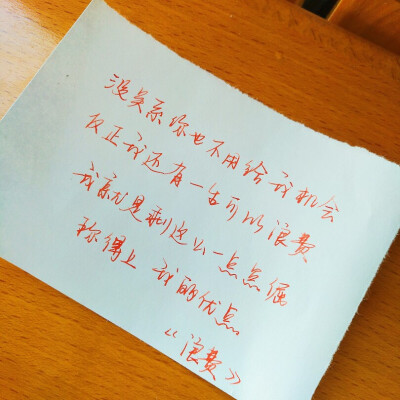 没关系你也不用给我机会
反正我还有一生可以浪费
我就是剩这么一点点倔
称得上 我的优点。
《浪费》